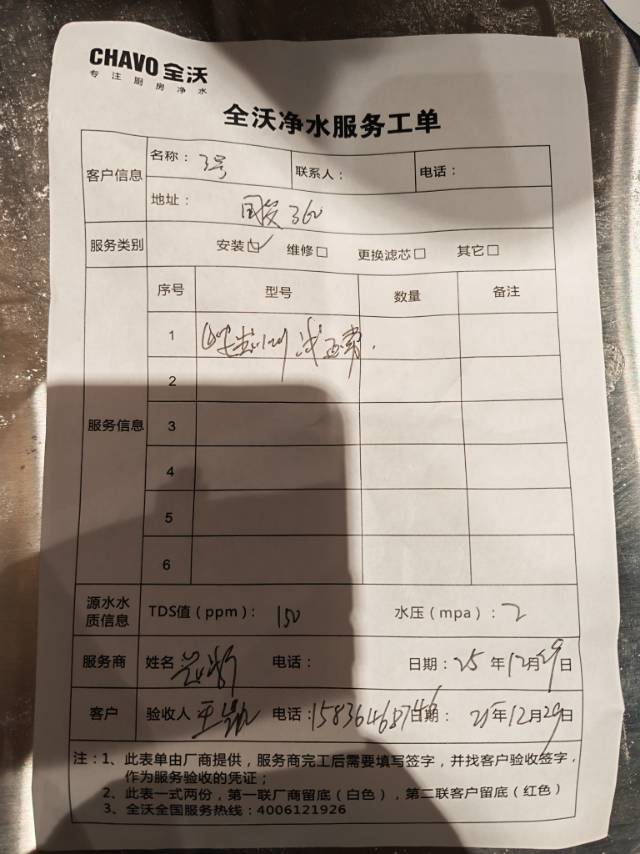 CHAVO 全沃
专注厨房净水
全沃净水服务工单
客户信息 名称：3号 联系人： 电话：
地址：国安360
服务类别 安装☑ 维修□ 更换滤芯□ 其它□
序号 型号 数量 备注
服务信息
1
2
3
4
5
6
源水水质信息 TDS值（ppm）：150 水压（mpa）：2
服务商 姓名 电话： 日期：25年12月29日
客户 验收人 电话：15836468746 日期：25年12月29日
注：1、此表单由厂商提供，服务商完工后需要填写签字，并找客户验收签字，
作为服务验收的凭证；
2、此表一式两份，第一联厂商留底（白色），第二联客户留底（红色）
3、全沃全国服务热线：4006121926